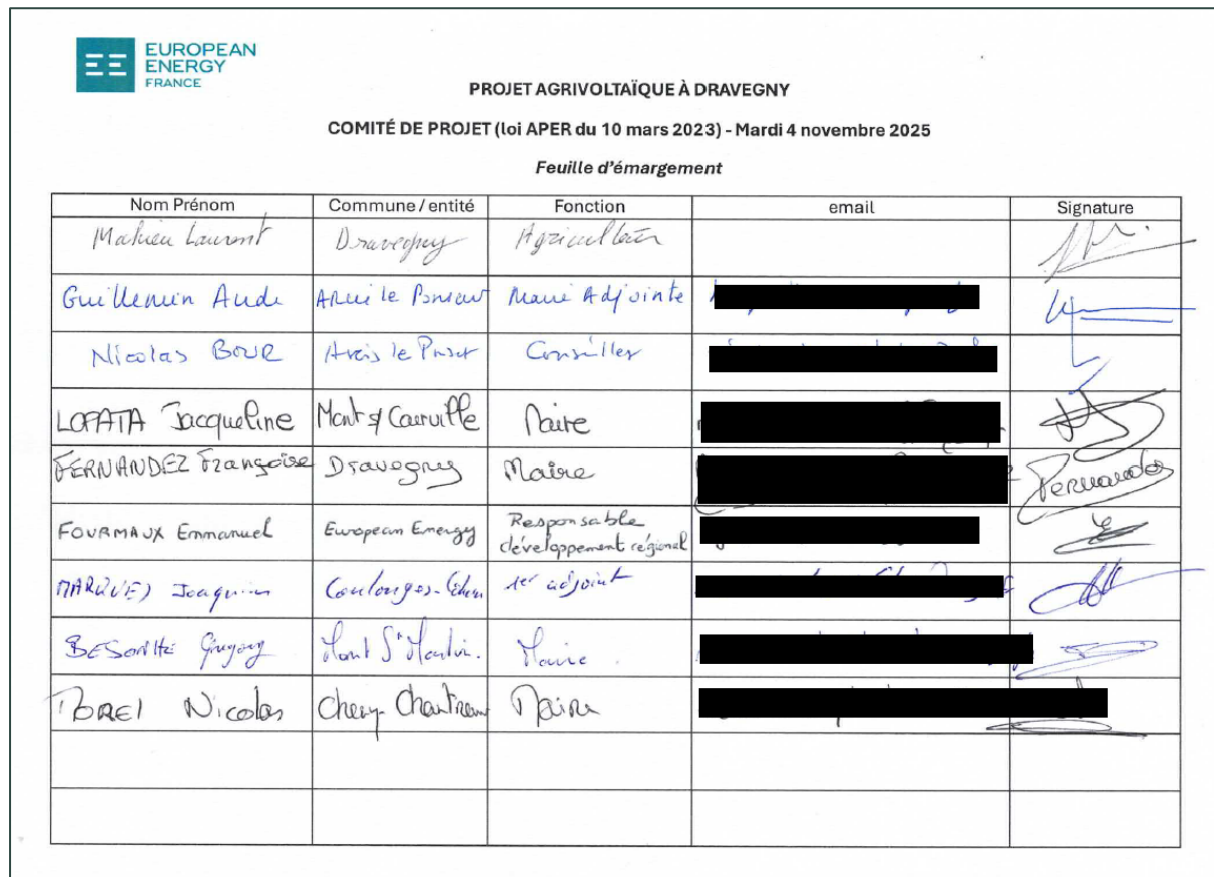 EUROPEAN
ENERGY
FRANCE
PROJET AGRIVOLTAÏQUE À DRAVEGNY
COMITÉ DE PROJET (loi APER du 10 mars 2023) - Mardi 4 novembre 2025
Feuille d'émargement
Nom Prénom Commune / entité Fonction email Signature
Mahieu Laurent Dravegny Agriculteur
Guillemin Aude Arcis le Ponsart Maire Adjointe
Nicolas BOUR Arcis le Ponsart Conseiller
LOPATA Jacqueline Mont s/ Courville Maire
FERNANDEZ Françoise Dravegny Maire Fernandez
FOURMAUX Emmanuel European Energy Responsable
développement régional
MARQUES Joaquim Coulonges-Cohan 1er adjoint
Grégory Mont St Martin. Maire
Nicolas Chery-Chartreuve Maire